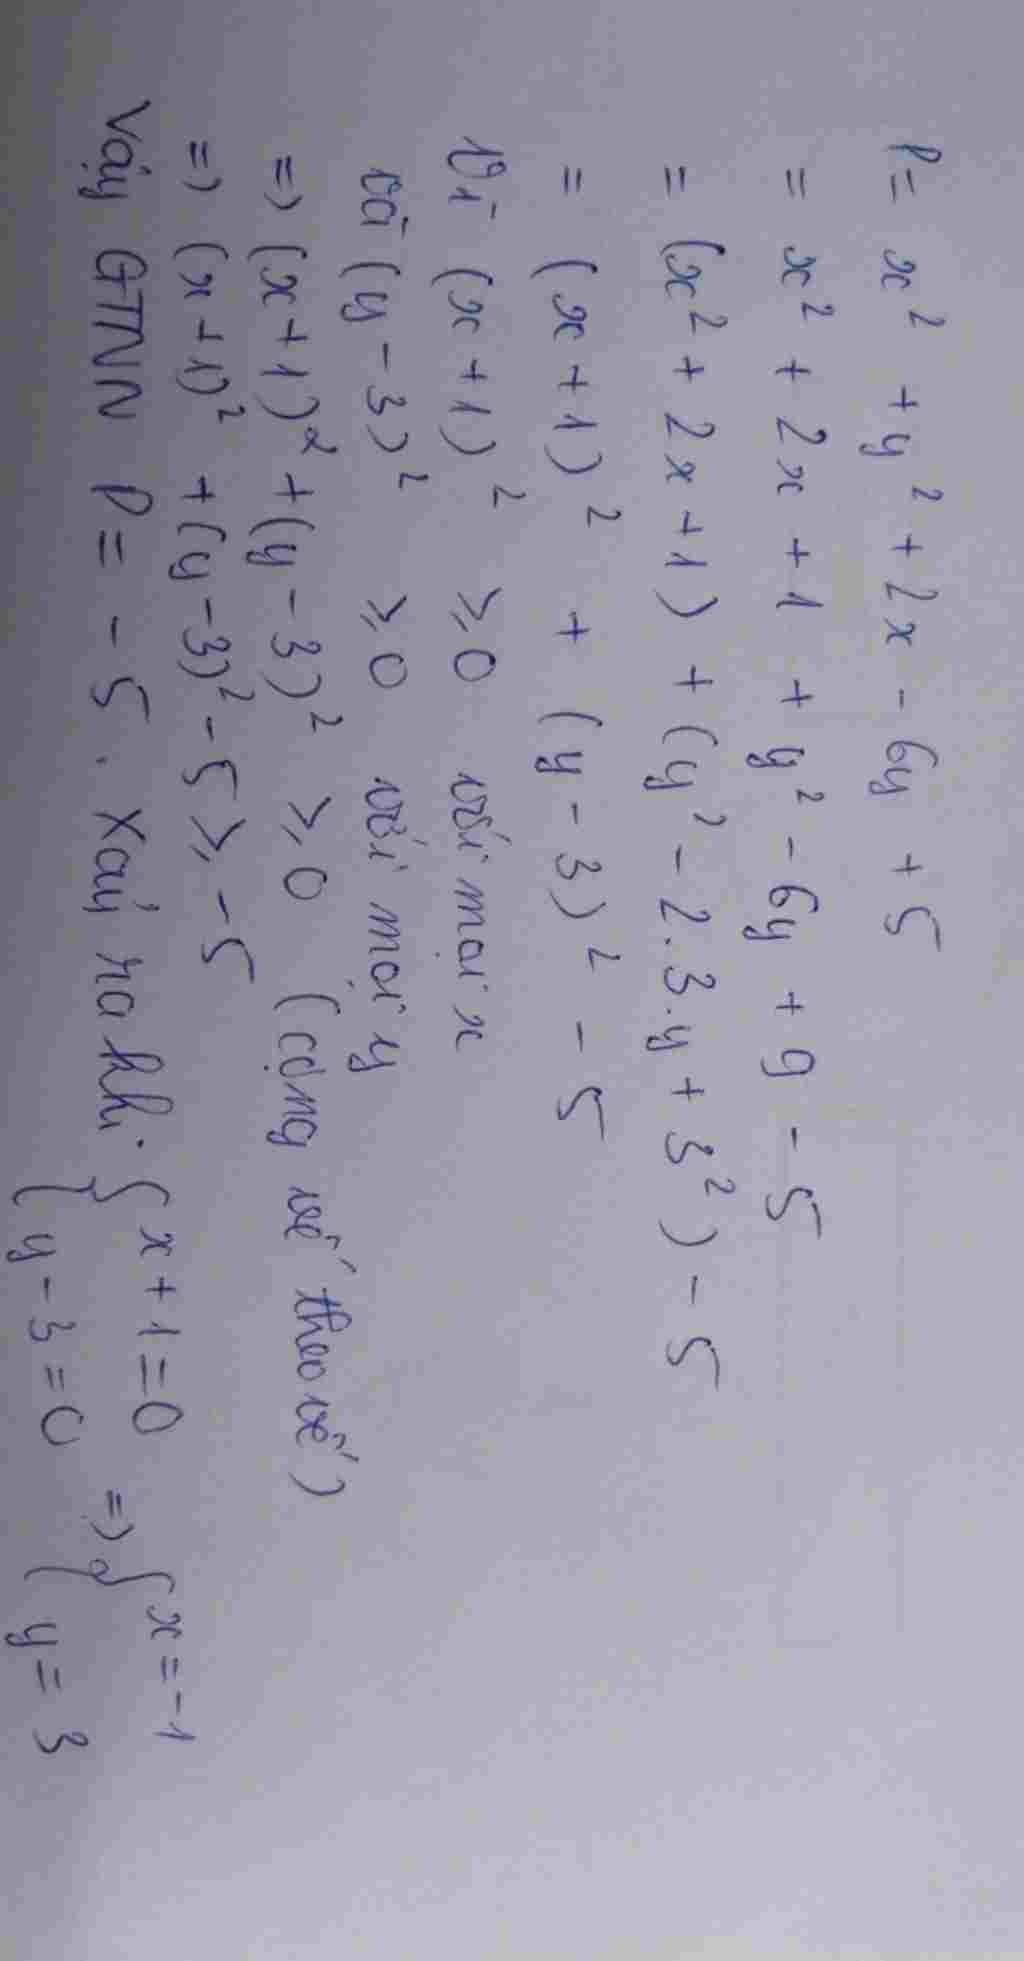 P = x² + y² + 2x - 6y + 5
= x² + 2x + 1 + y² - 6y + 9 - 5
= (x² + 2x + 1) + (y² - 2.3.y + 3²) - 5
= (x + 1)² + (y - 3)² - 5
Vì (x + 1)² ≥ 0 với mọi x
và (y - 3)² ≥ 0 với mọi y
=> (x + 1)² + (y - 3)² ≥ 0 (cộng vế theo vế)
=> (x + 1)² + (y - 3)² - 5 ≥ -5
Vậy GTNN P = -5. Xảy ra khi { x + 1 = 0 => { x = -1
{ y - 3 = 0 { y = 3